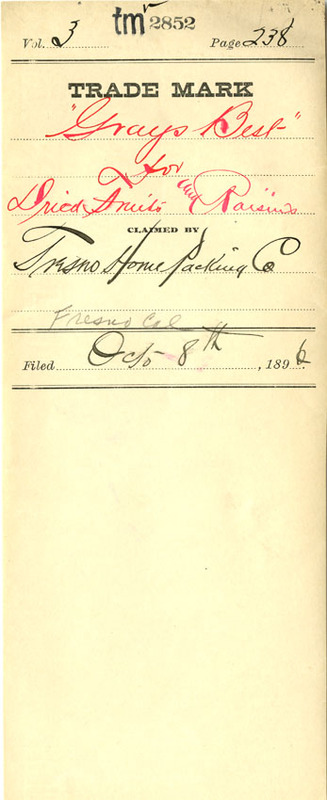 tm 2852
Vol. 3 Page 238
TRADE MARK
"Grays Best"
for
Dried Fruits and Raisins
CLAIMED BY
Fresno Home Packing Co
Fresno Cal
Filed Oct 8th, 1896.